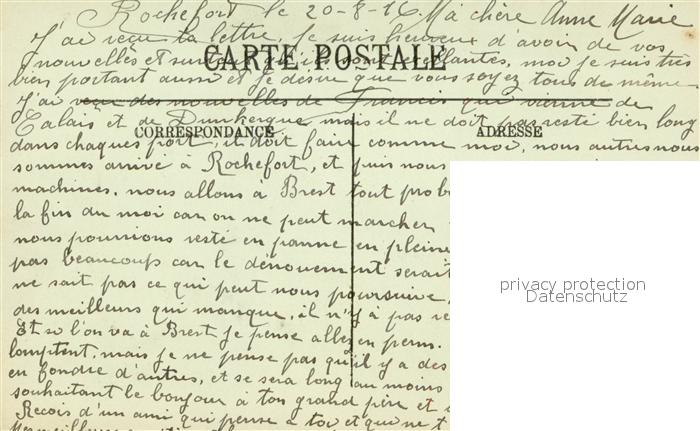 Rochefort le 20-8-16 Ma chère Anne Marie
J'ai reçue ta lettre, je suis heureux d'avoir de vos
nouvelles et sur
CARTE POSTALE
moi je suis très
bien portant aussi et je désire que vous soyez tous de même.
J'ai reçue des nouvelles de Francis qui vienne de
Calais et de Dunkerque mais il ne doit pas resté bien long
CORRESPONDANCE
ADRESSE
dans chaques port, il doit faire comme moi, nous autres nous
sommes arrivé à Rochefort, et puis nous
machines. nous allons à Brest tout prob
la fin du moi car on ne peut marcher
nous pourrions resté en panne en pleine
pas beaucoup car le dénouement serait
ne sait pas ce qui peut nous poursuivre,
des meilleurs qui manque, il n'y à pas re
Et si l'on va à Brest je pense aller en perm.
comptent, mais je ne pense pas qu'il y a des
en fondre d'autres, et se sera long au moins
souhaitant le bonjour à ton grand père et
Recois d'un ami qui pense à toi et qui ne t
privacy protection
Datenschutz